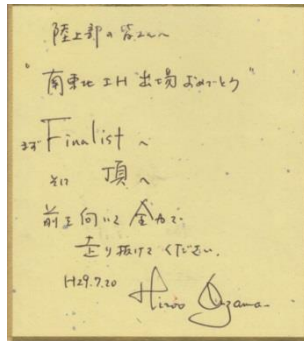 陸上部の皆さんへ
"南東北IH 出場おめでとう"
まず Finalist へ
そして 頂へ
前を向いて 全力で
走り抜けてください。
H29.7.20
Hiroo